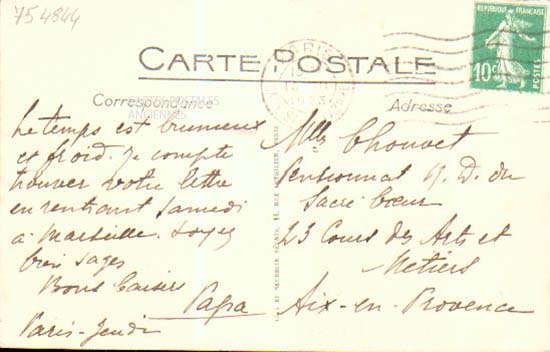 754844
CARTE POSTALE
RÉPUBLIQUE FRANÇAISE
10c
POSTES
PARIS
Correspondance
Adresse
POSTALES
ANCIENNES
Le temps est brumeux
et froid. Je compte
trouver votre lettre
en rentrant samedi
à Marseille. Soyez
bien sages
Bons baisers
Papa
Paris-Jeudi
Mlle Chouvet
Pensionnat N. D. du
Sacré Cœur
23 Cours des Arts et
Métiers
Aix-en-Provence